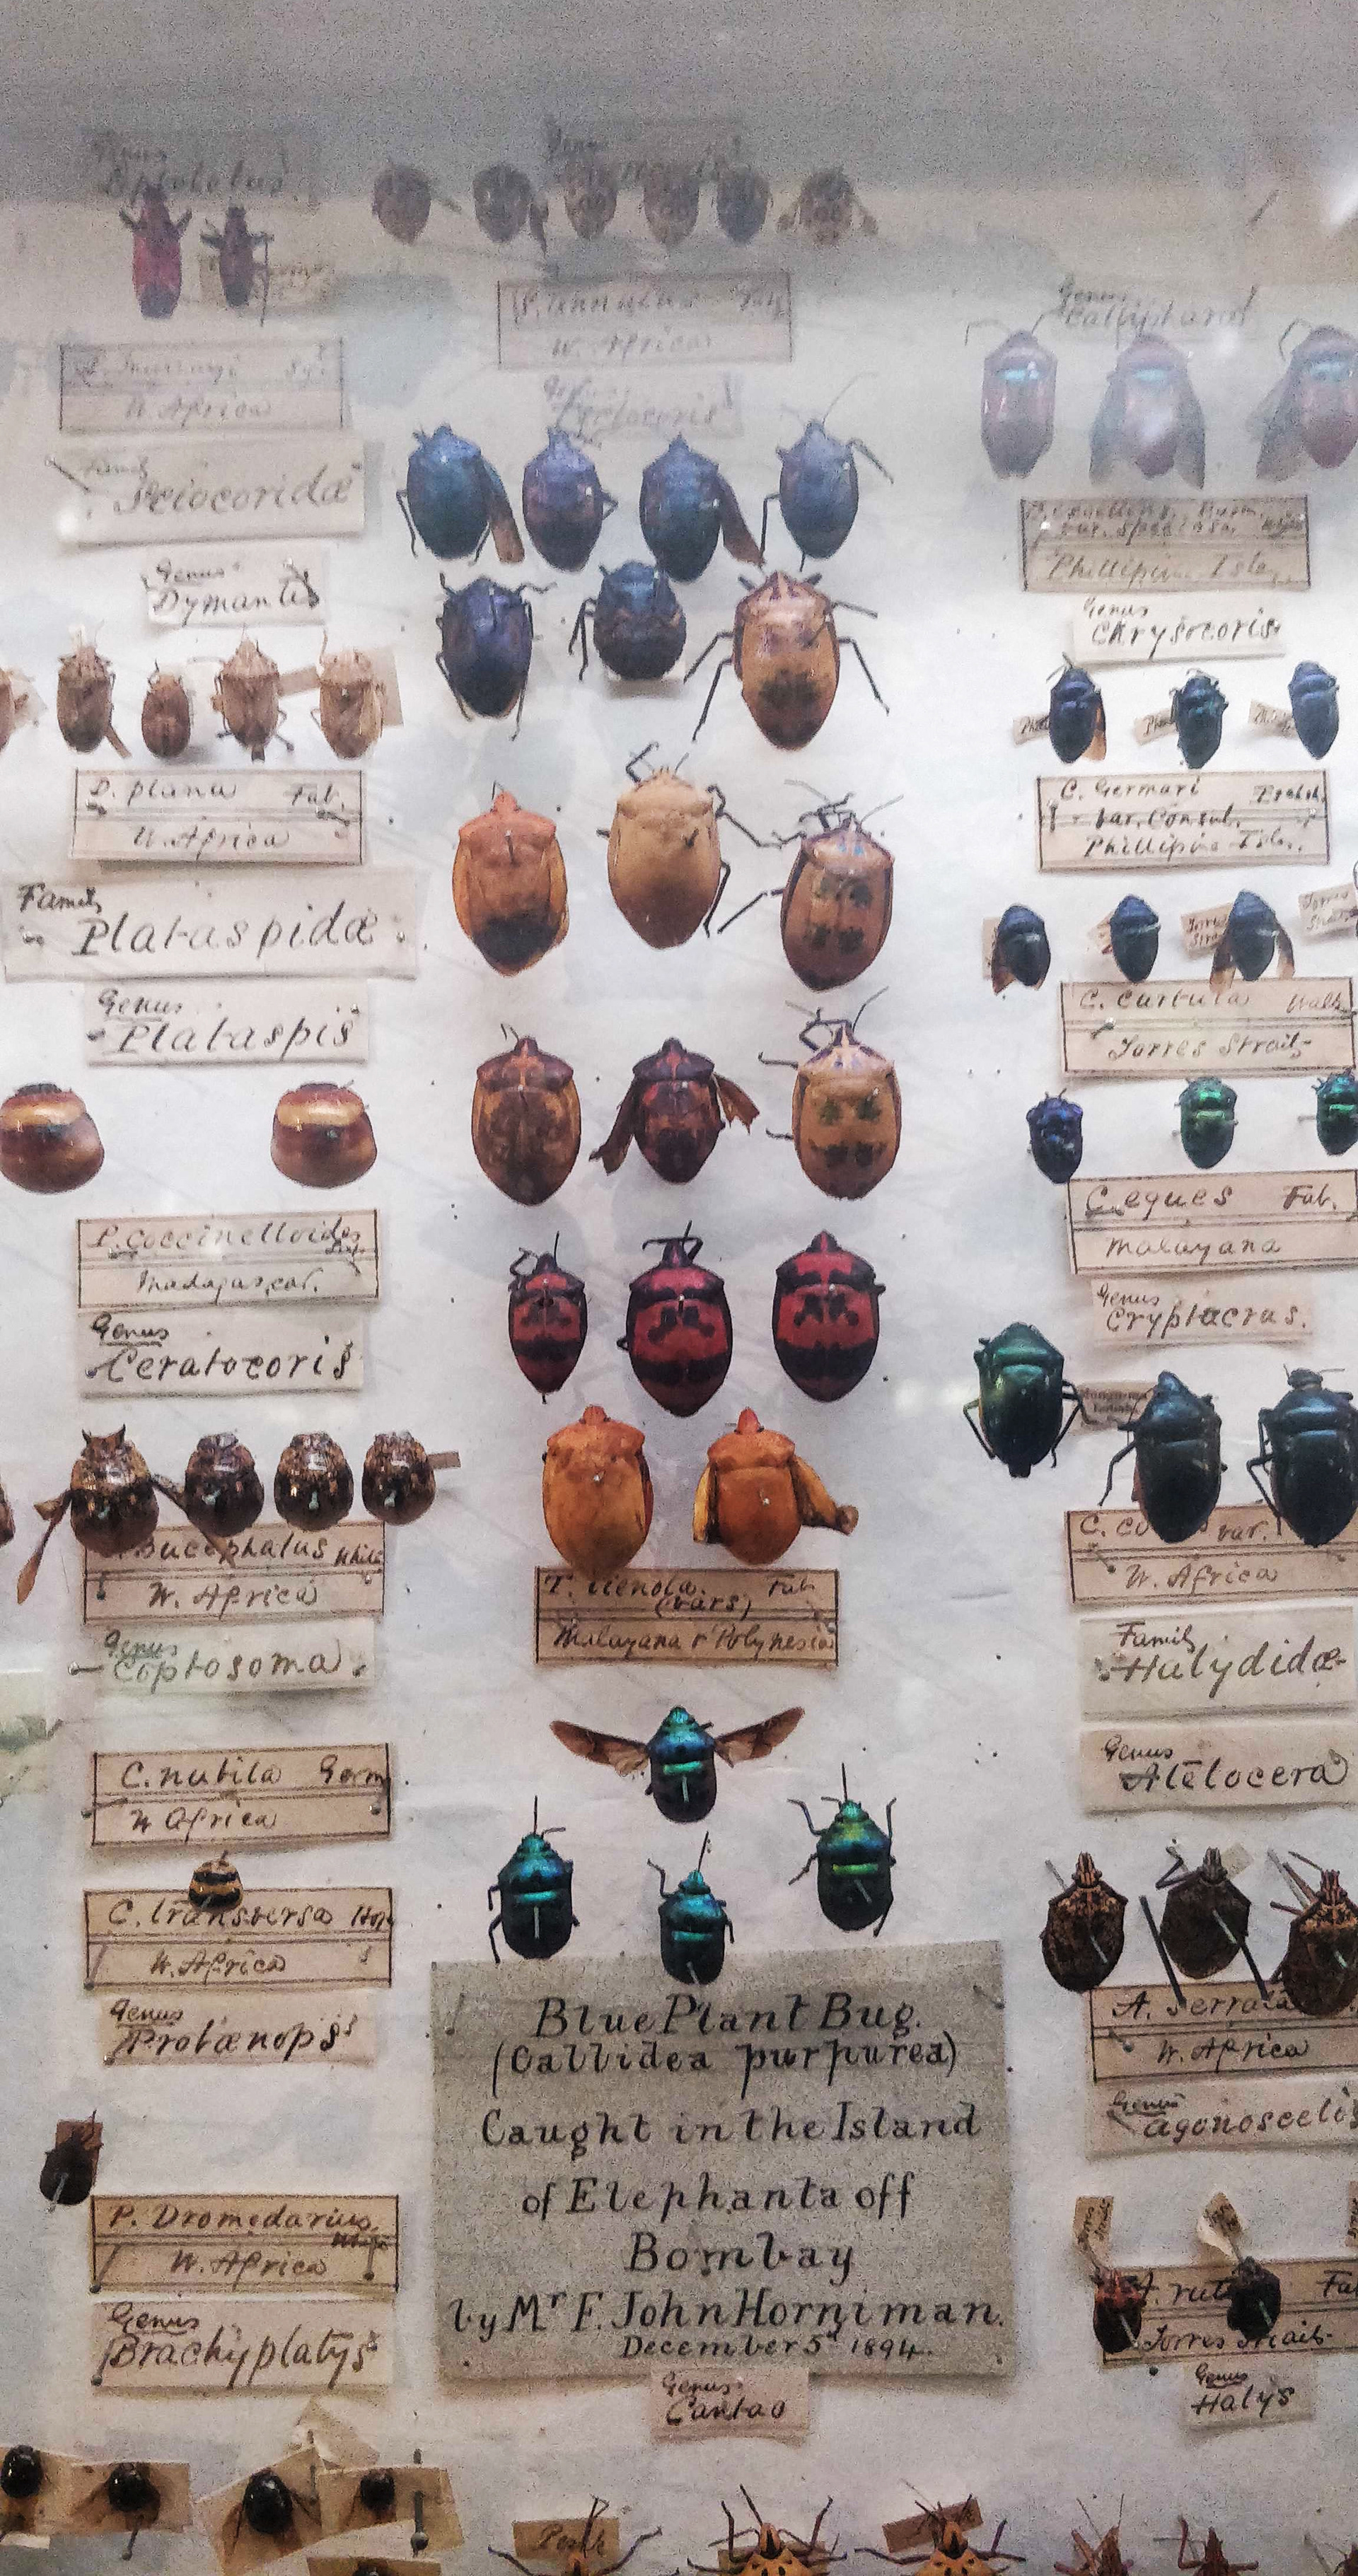 Genus
Genus
Fab.
W. Africa
W. Africa
Genus
Tectocoris
Family
Sciocoridæ
Genus
Dymantis
D. plana Fab.
W. Africa
Family
Plataspidæ
Genus
Plataspis
P. Coccinelloides
Madagascar.
Genus
Ceratocoris
Bucephalus White
W. Africa
Genus
Coptosoma
C. nubila Germ
W Africa
C. transversa Hop
W. Africa
Genus
Protænops
P. Dromedarius
W. Africa
Genus
Brachyplatys
T. lienola. Fab
(vars)
Malayana & Polynesia
Blue Plant Bug.
(Callidea purpurea)
Caught in the Island
of Elephanta off
Bombay
by Mr F. John Horniman.
December 5th 1894.
Genus
Cantao
Genus
Calliphara
var. Speciosa.
Phillipine Isles
Genus
Chrysocoris
C. Germari Eschh.
var. Consul.
Phillipine Isles.
Torres
Strait
C. curtula Walk
Torres Strait
C. eques Fab.
Malayana
Genus
Cryptacrus.
C. co var.
W. Africa
Family
Halydidæ
Genus
Atelocera
A. Serrata
W. Africa
Genus
Agonoscelis
A. ruti Fa
Torres Strait
Genus
Halys